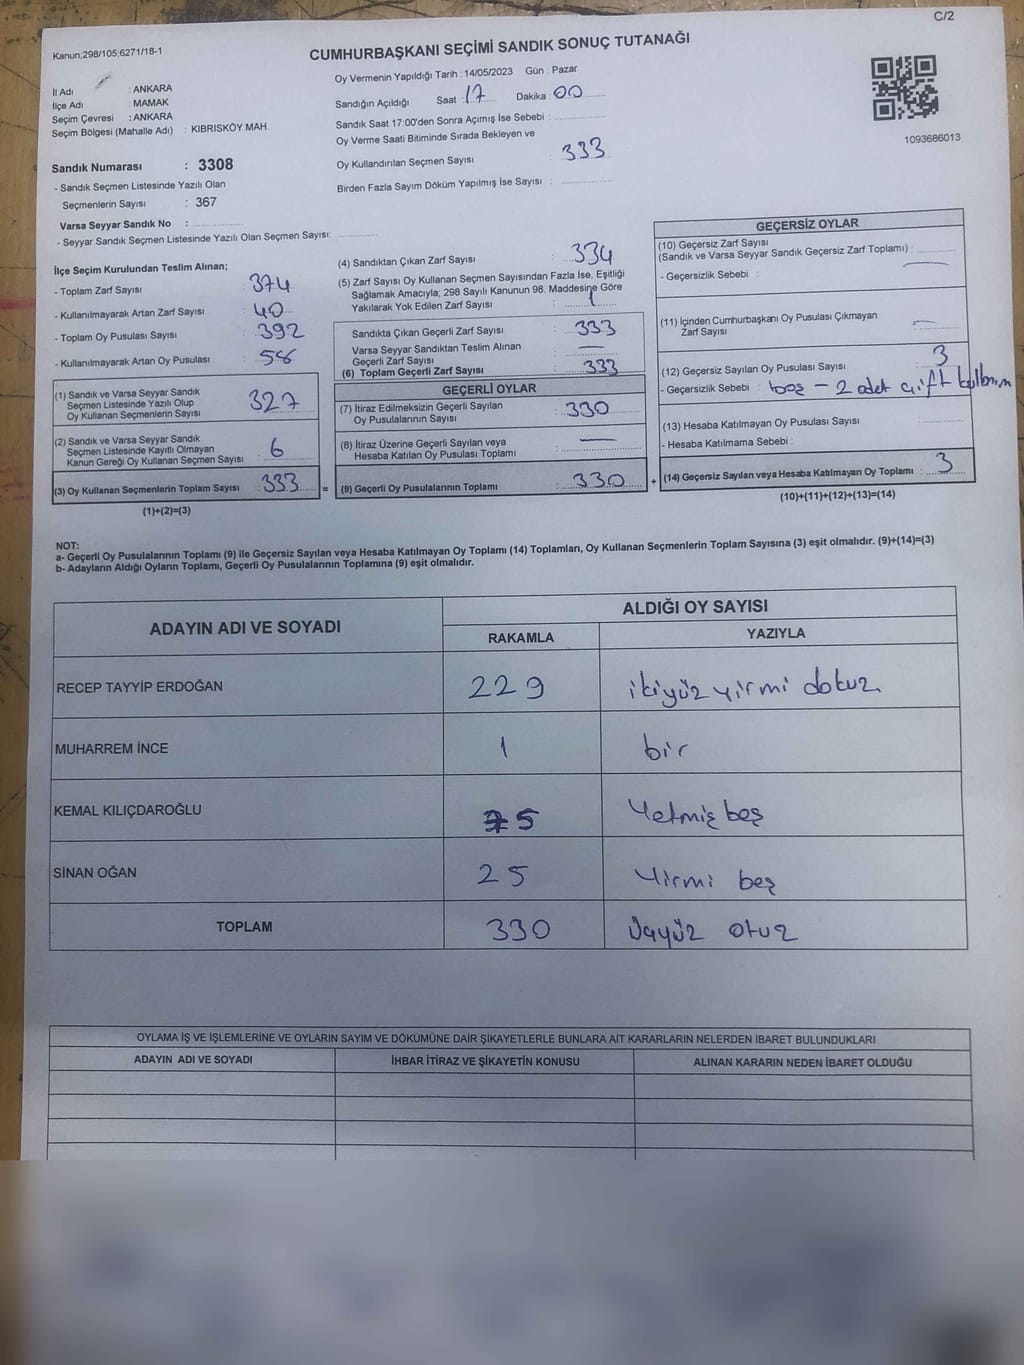 C/2
Kanun;298/105;6271/18-1
CUMHURBAŞKANI SEÇİMİ SANDIK SONUÇ TUTANAĞI
Oy Vermenin Yapıldığı Tarih : 14/05/2023 Gün : Pazar
İl Adı : ANKARA
İlçe Adı : MAMAK
Seçim Çevresi : ANKARA
Seçim Bölgesi (Mahalle Adı) : KIBRISKÖY MAH.
Sandığın Açıldığı Saat : 17 Dakika : 00
Sandık Saat 17:00'den Sonra Açımış İse Sebebi :
Oy Verme Saati Bitiminde Sırada Bekleyen ve
Oy Kullandırılan Seçmen Sayısı : 333
Birden Fazla Sayım Döküm Yapılmış İse Sayısı :
1093686013
Sandık Numarası : 3308
- Sandık Seçmen Listesinde Yazılı Olan
Seçmenlerin Sayısı : 367
Varsa Seyyar Sandık No :
- Seyyar Sandık Seçmen Listesinde Yazılı Olan Seçmen Sayısı:
İlçe Seçim Kurulundan Teslim Alınan;
- Toplam Zarf Sayısı : 374
- Kullanılmayarak Artan Zarf Sayısı : 40
- Toplam Oy Pusulası Sayısı : 392
- Kullanılmayarak Artan Oy Pusulası : 58
(1) Sandık ve Varsa Seyyar Sandık
Seçmen Listesinde Yazılı Olup
Oy Kullanan Seçmenlerin Sayısı : 327
(2) Sandık ve Varsa Seyyar Sandık
Seçmen Listesinde Kayıtlı Olmayan
Kanun Gereği Oy Kullanan Seçmen Sayısı : 6
(3) Oy Kullanan Seçmenlerin Toplam Sayısı : 333 =
(1)+(2)=(3)
(4) Sandıktan Çıkan Zarf Sayısı : 334
(5) Zarf Sayısı Oy Kullanan Seçmen Sayısından Fazla İse, Eşitliği
Sağlamak Amacıyla; 298 Sayılı Kanunun 98. Maddesine Göre
Yakılarak Yok Edilen Zarf Sayısı : 1
Sandıkta Çıkan Geçerli Zarf Sayısı : 333
Varsa Seyyar Sandıktan Teslim Alınan
Geçerli Zarf Sayısı : —
(6) Toplam Geçerli Zarf Sayısı : 333
GEÇERLİ OYLAR
(7) İtiraz Edilmeksizin Geçerli Sayılan
Oy Pusulalarının Sayısı : 330
(8) İtiraz Üzerine Geçerli Sayılan veya
Hesaba Katılan Oy Pusulası Toplamı : —
(9) Geçerli Oy Pusulalarının Toplamı : 330 +
GEÇERSİZ OYLAR
(10) Geçersiz Zarf Sayısı
(Sandık ve Varsa Seyyar Sandık Geçersiz Zarf Toplamı) : —
- Geçersizlik Sebebi :
(11) İçinden Cumhurbaşkanı Oy Pusulası Çıkmayan
Zarf Sayısı : —
(12) Geçersiz Sayılan Oy Pusulası Sayısı : 3
- Geçersizlik Sebebi : boş – 2 adet çift
(13) Hesaba Katılmayan Oy Pusulası Sayısı :
- Hesaba Katılmama Sebebi :
(14) Geçersiz Sayılan veya Hesaba Katılmayan Oy Toplamı : 3
(10)+(11)+(12)+(13)=(14)
NOT:
a- Geçerli Oy Pusulalarının Toplamı (9) ile Geçersiz Sayılan veya Hesaba Katılmayan Oy Toplamı (14) Toplamları, Oy Kullanan Seçmenlerin Toplam Sayısına (3) eşit olmalıdır. (9)+(14)=(3)
b- Adayların Aldığı Oyların Toplamı, Geçerli Oy Pusulalarının Toplamına (9) eşit olmalıdır.
ADAYIN ADI VE SOYADI
ALDIĞI OY SAYISI
RAKAMLA YAZIYLA
RECEP TAYYİP ERDOĞAN 229 ikiyüz yirmi dokuz
MUHARREM İNCE 1 bir
KEMAL KILIÇDAROĞLU 75 Yetmiş beş
SİNAN OĞAN 25 Yirmi beş
TOPLAM 330 Üçyüz otuz
OYLAMA İŞ VE İŞLEMLERİNE VE OYLARIN SAYIM VE DÖKÜMÜNE DAİR ŞİKAYETLERLE BUNLARA AİT KARARLARIN NELERDEN İBARET BULUNDUKLARI
ADAYIN ADI VE SOYADI İHBAR İTİRAZ VE ŞİKAYETİN KONUSU ALINAN KARARIN NEDEN İBARET OLDUĞU